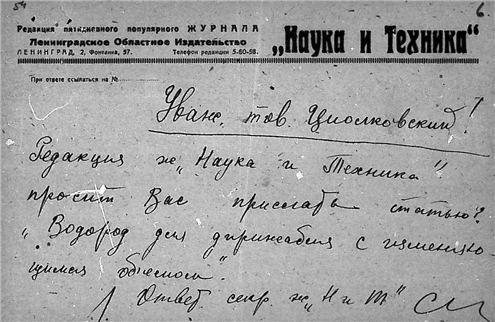 54
6.
Редакция пятидневного популярного ЖУРНАЛА
Ленинградское Областное Издательство
ЛЕНИНГРАД, 2, Фонтанка, 57. Телефон редакции 5-60-58.
„Наука и Техника“
При ответе ссылаться на №
Уваж. тов. Циолковский!
Редакция ж. „Наука и Техника“
просит Вас прислать статью:
„Водород для дирижабля с изменяю-
щимся объемом“.
Ответ. секр. ж. „Н и Т“